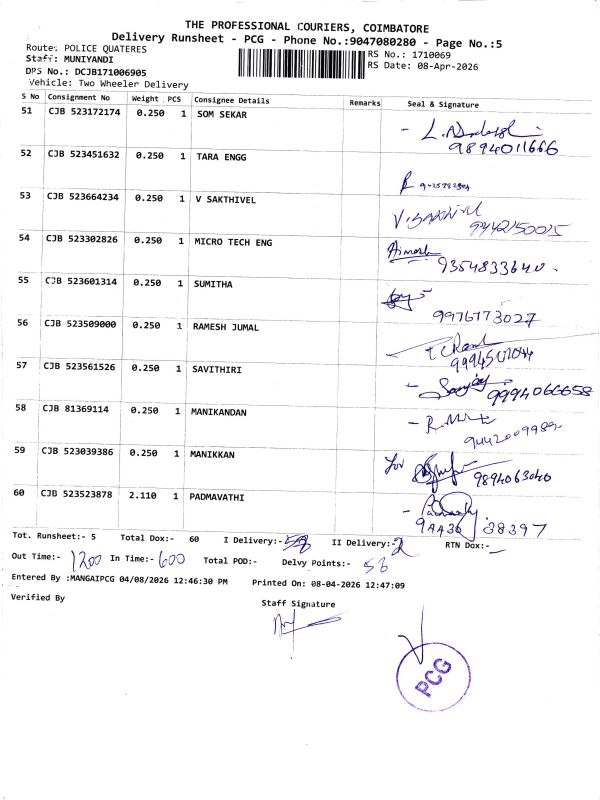 THE PROFESSIONAL COURIERS, COIMBATORE
Delivery Runsheet - PCG - Phone No.:9047080280 - Page No.:5
Route: POLICE QUATERES
RS No.: 1710069
Staff: MUNIYANDI
RS Date: 08-Apr-2026
DPS No.: DCJB171006905
Vehicle: Two Wheeler Delivery
S No Consignment No Weight PCS Consignee Details Remarks Seal & Signature
51 CJB 523172174 0.250 1 SOM SEKAR
9894011666
52 CJB 523451632 0.250 1 TARA ENGG
53 CJB 523664234 0.250 1 V SAKTHIVEL
V. SAKTHIVEL
9442150025
54 CJB 523302826 0.250 1 MICRO TECH ENG
9354833640.
55 CJB 523601314 0.250 1 SUMITHA
9976773027
56 CJB 523509000 0.250 1 RAMESH JUMAL
57 CJB 523561526 0.250 1 SAVITHIRI
9994066658
58 CJB 81369114 0.250 1 MANIKANDAN
9442009989
59 CJB 523039386 0.250 1 MANIKKAN
for
9894063040
60 CJB 523523878 2.110 1 PADMAVATHI
94436 38397
Tot. Runsheet:- 5 Total Dox:- 60 I Delivery:- 58 II Delivery:- 2 RTN Dox:-
Out Time:- 1200 In Time:- 600 Total POD:- Delvy Points:- 56
Entered By :MANGAIPCG 04/08/2026 12:46:30 PM Printed On: 08-04-2026 12:47:09
Verified By
Staff Signature
PCG